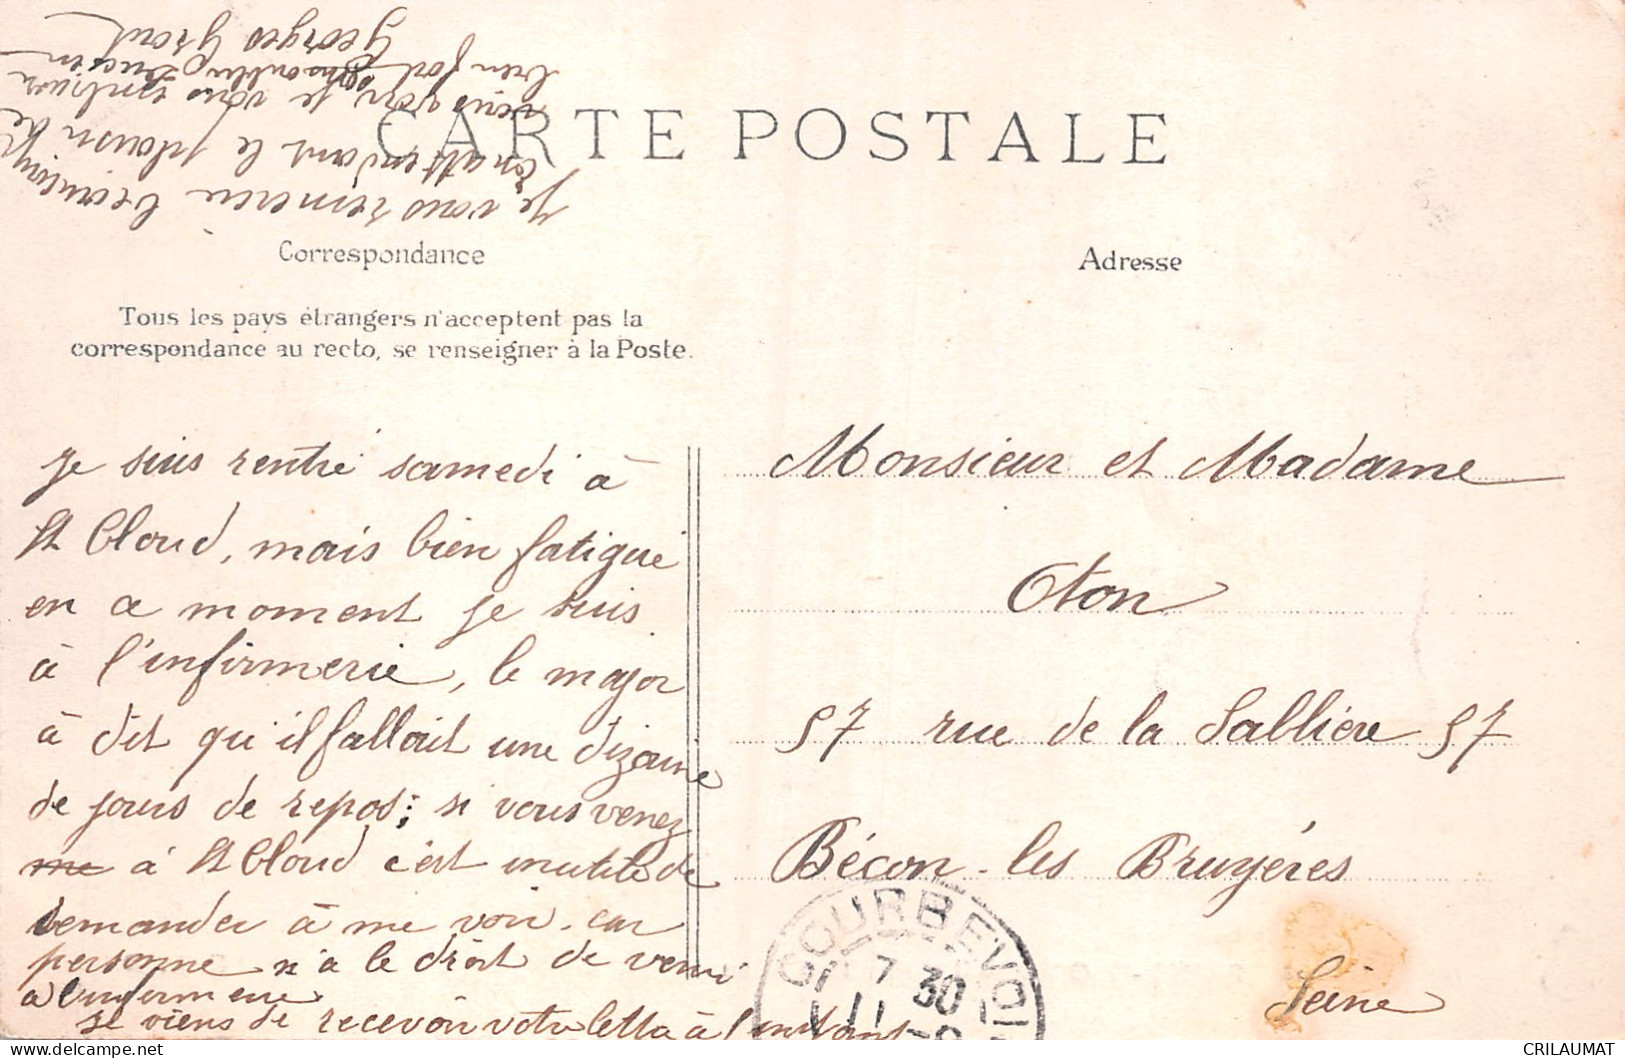 CARTE POSTALE
Correspondance
Adresse
Tous les pays étrangers n'acceptent pas la
correspondance au recto, se renseigner à la Poste.
Je suis rentré samedi à
St Cloud, mais bien fatigué
en ce moment je suis
à l'infirmerie, le major
à dit qu'il fallait une dizaine
de jours de repos; si vous venez
me à St Cloud c'est inutile de
demander à me voir. car
personne n'a le droit de venir
à l'infirmerie
je viens de recevoir votre lettre à l'instant
Je vous remercie
en attendant le plaisir de
vous voir je vous embrasse
bien fort
Georges
Monsieur et Madame
Oton
57 rue de la Sablière 57
Bécon-les Bruyères
Seine
COURBEVOI
7 30
11
CRILAUMAT